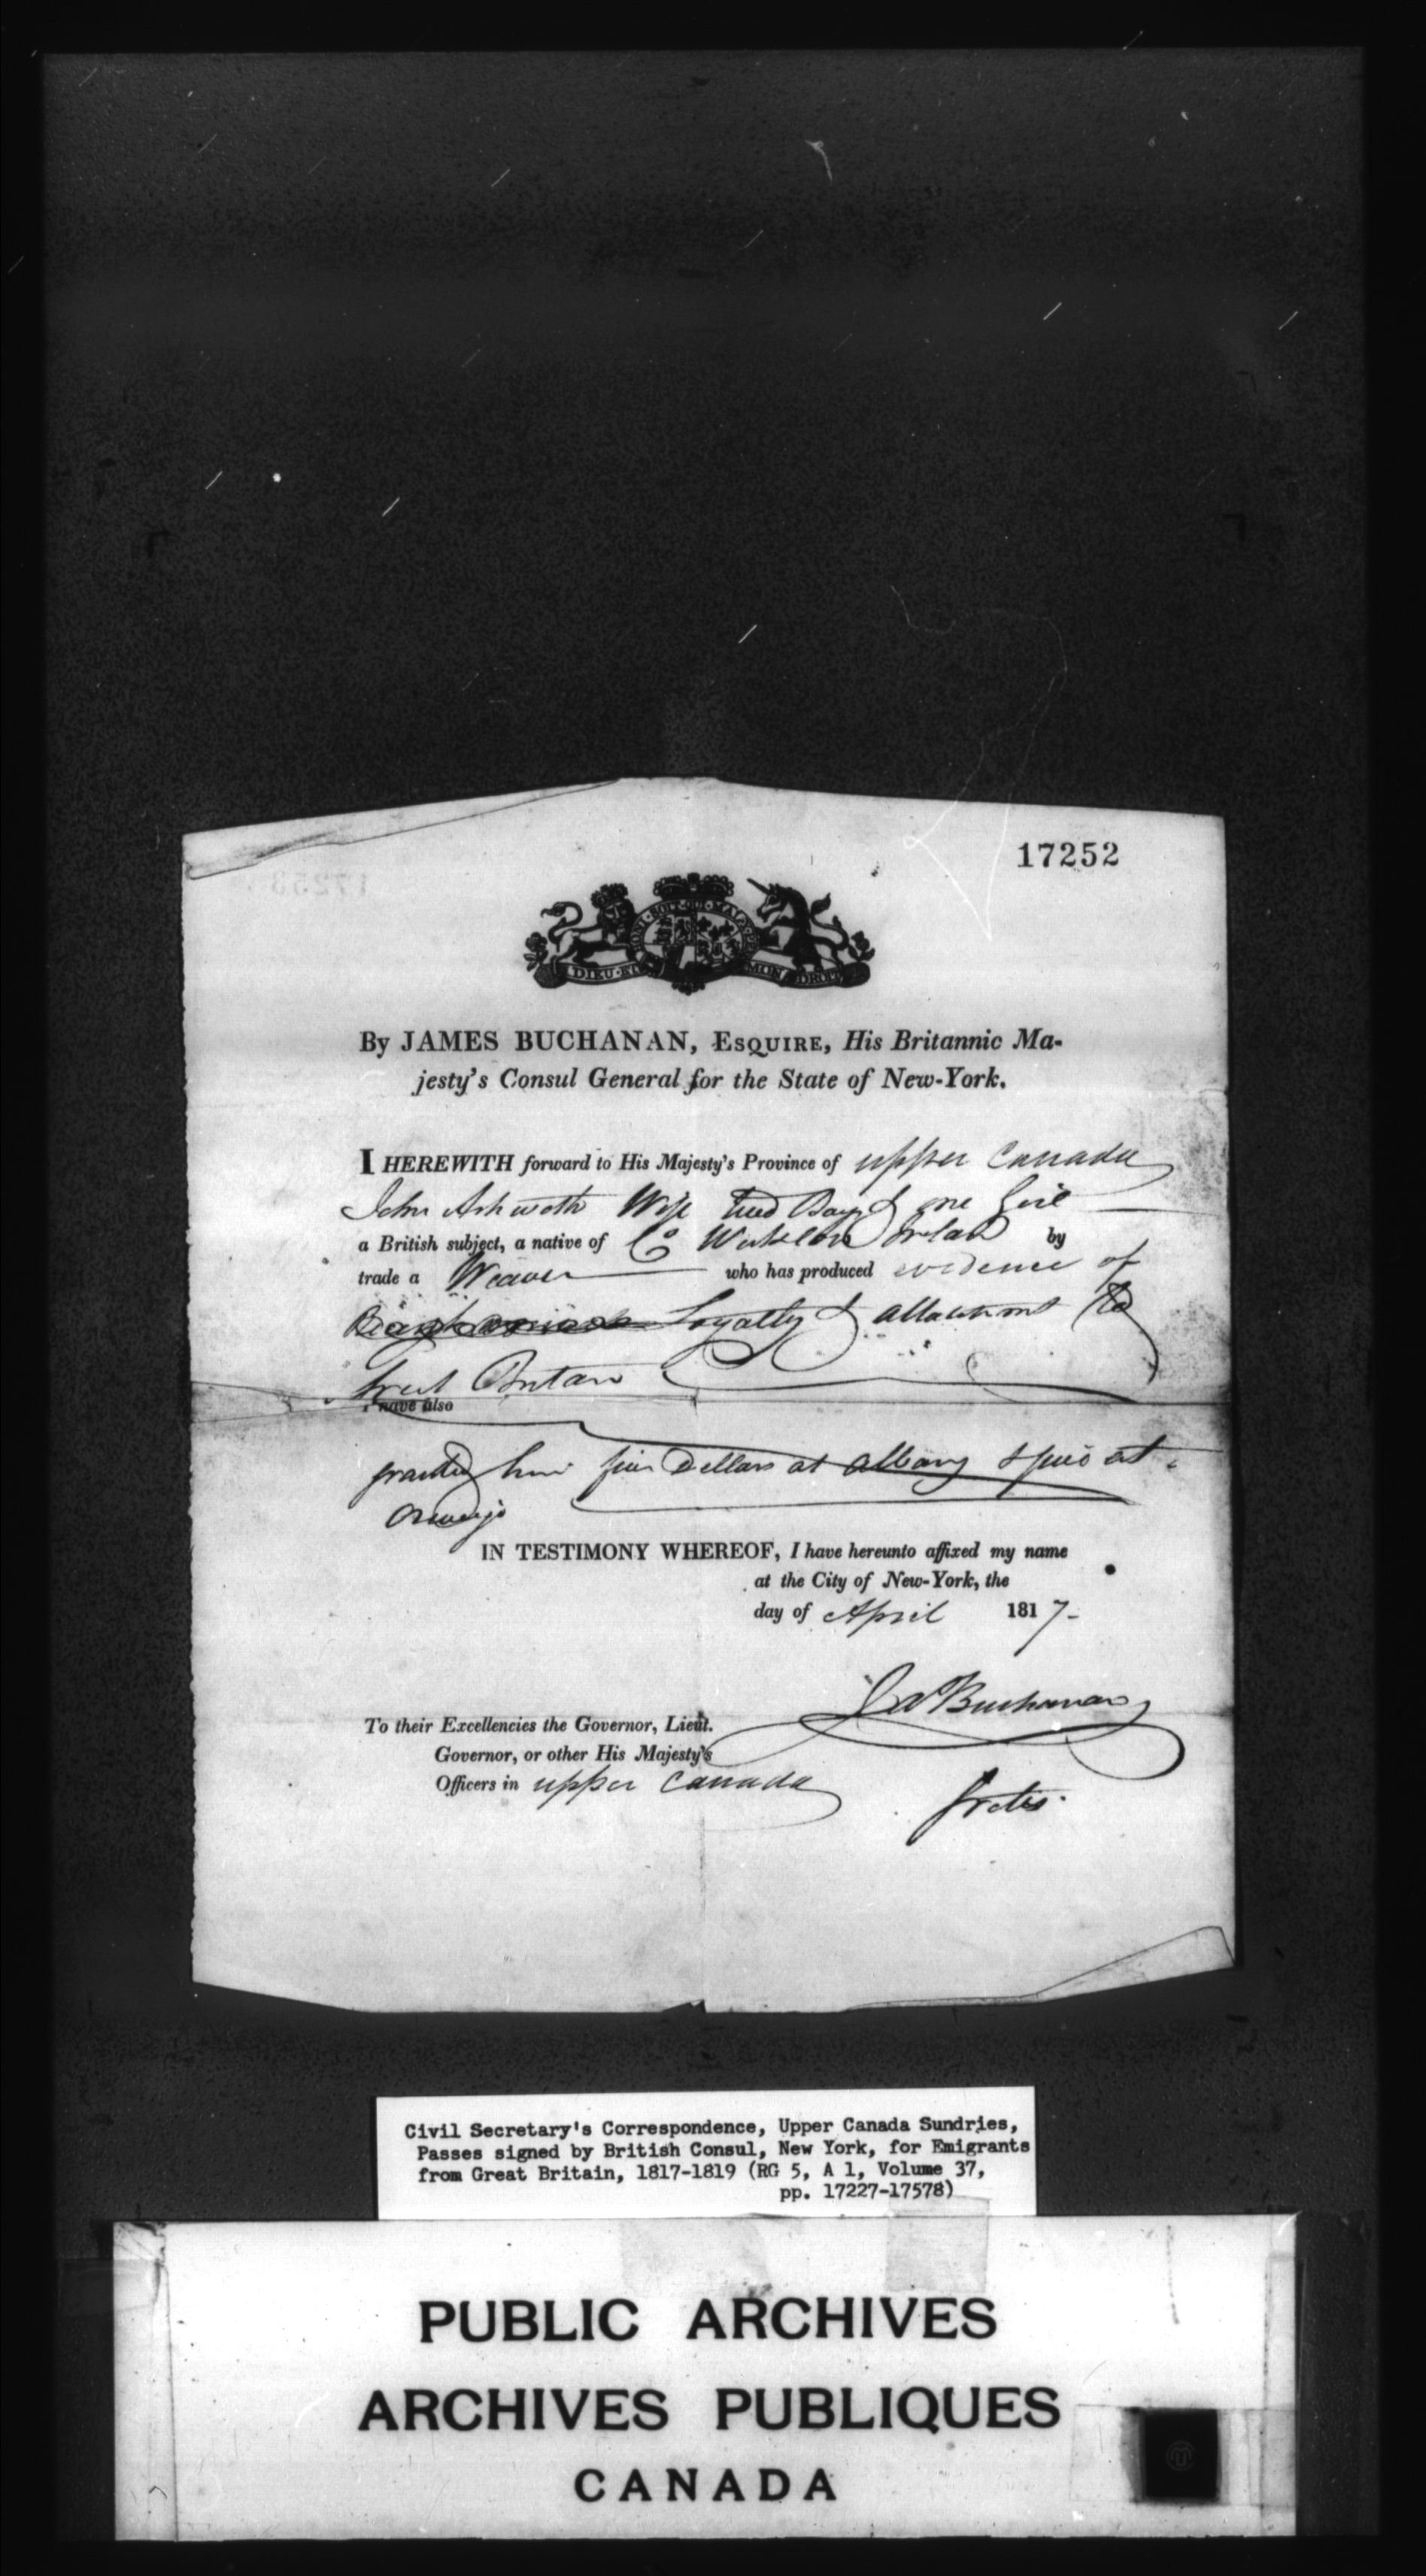 17252
HONI·SOIT·QUI·MAL·
DIEU·ET MON DROIT
By JAMES BUCHANAN, ESQUIRE, His Britannic Ma-
jesty's Consul General for the State of New-York.
I HEREWITH forward to His Majesty's Province of upper Canada
John Ashworth Wife two Boys & one Girl
a British subject, a native of Co Wicklow Ireland by
trade a Weaver who has produced evidence of
Loyalty & attachment to
Great Britain
I have also
granted him five Dollars at Albany & five at
Oswego
IN TESTIMONY WHEREOF, I have hereunto affixed my name
at the City of New-York, the
day of April 1817-
Ja Buchanan
To their Excellencies the Governor, Lieut.
Governor, or other His Majesty's
Officers in upper Canada
Gratis.
Civil Secretary's Correspondence, Upper Canada Sundries,
Passes signed by British Consul, New York, for Emigrants
from Great Britain, 1817-1819 (RG 5, A 1, Volume 37,
pp. 17227-17578)
PUBLIC ARCHIVES
ARCHIVES PUBLIQUES
CANADA